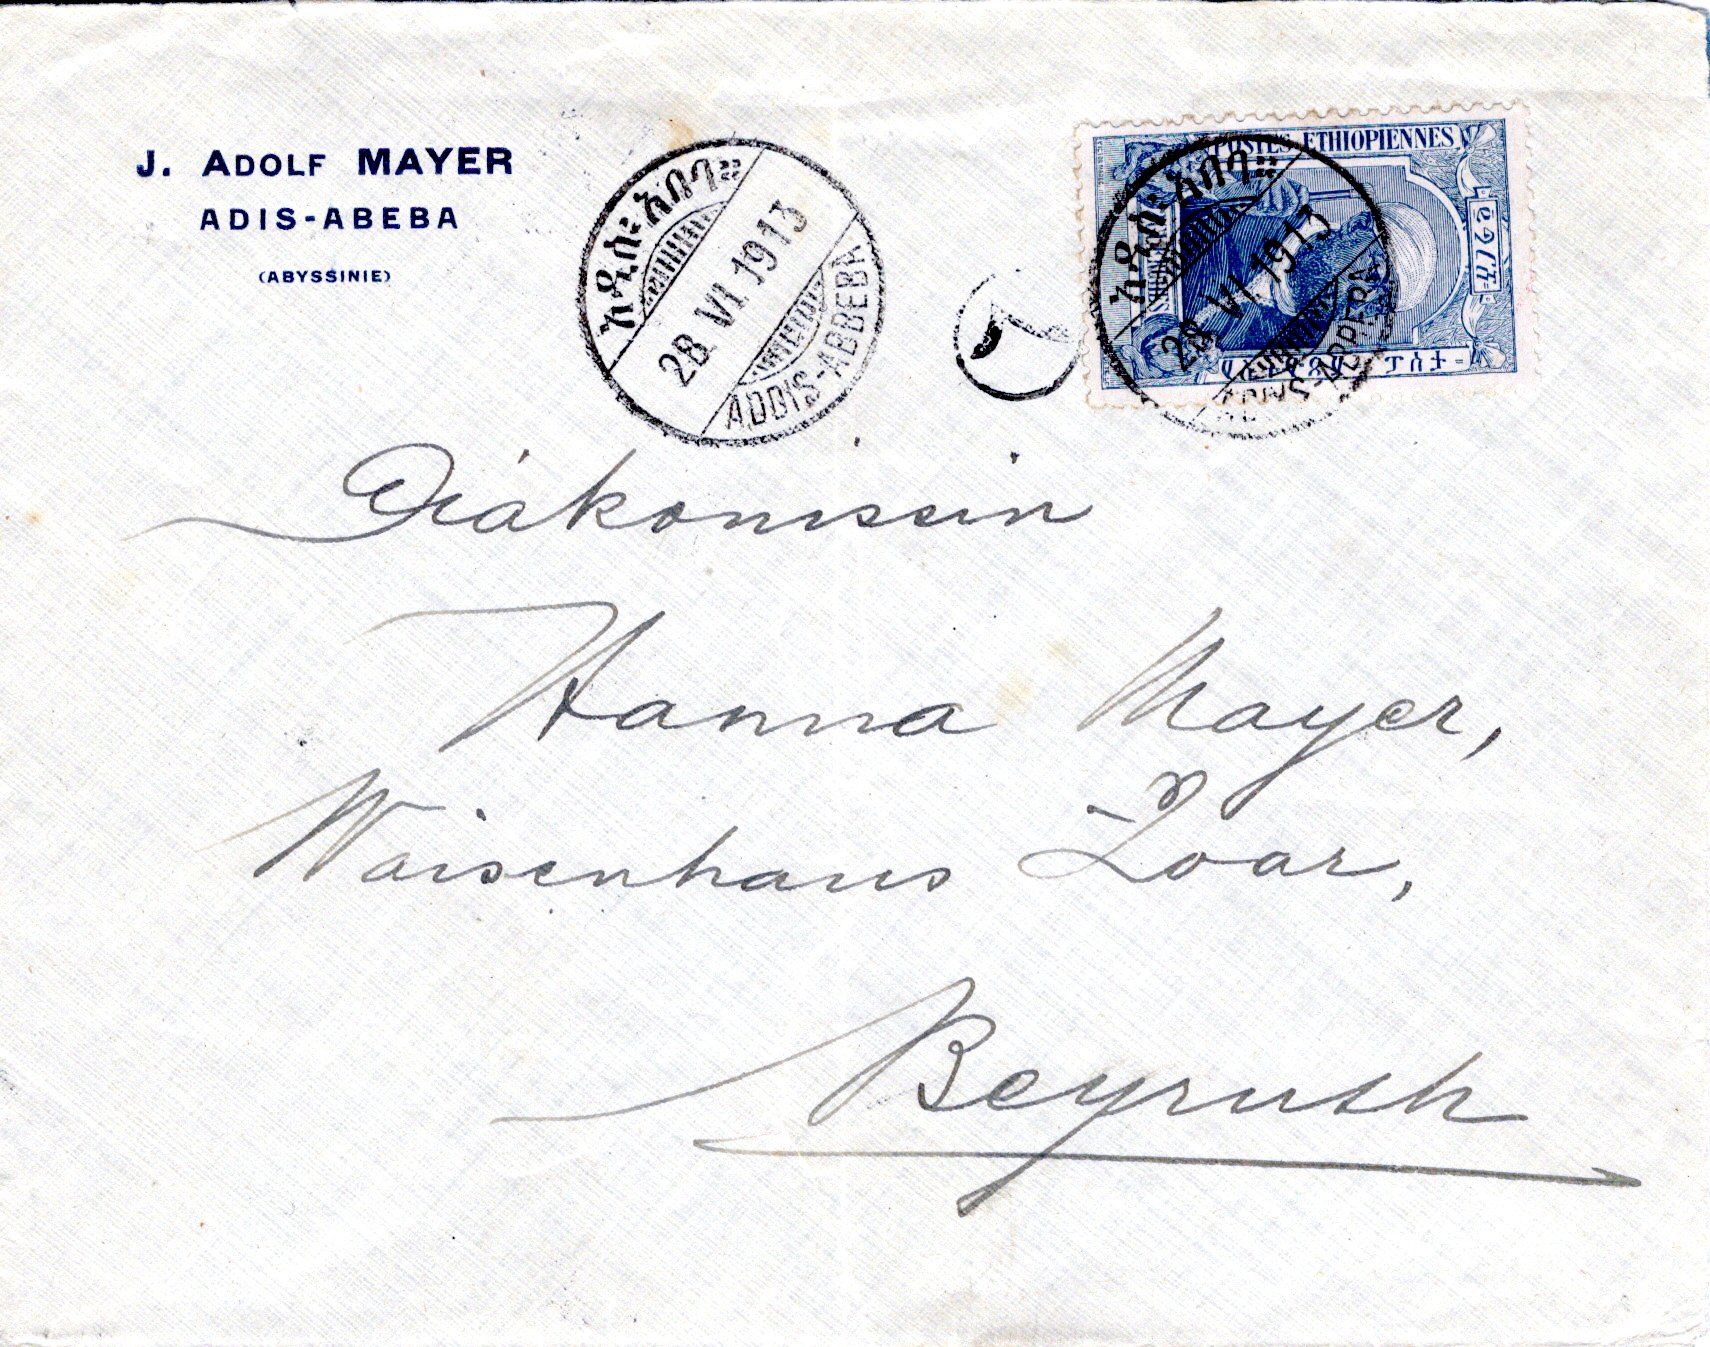 J. ADOLF MAYER
ADIS-ABEBA
(ABYSSINIE)
አዲስ፡ አበባ።
28. VI. 1913
ADDIS-ABBEBA
POSTES ETHIOPIENNES
አዲስ፡ አበባ።
28. VI. 1913
Diakonissin
Hanna Mayer,
Waisenhaus Zoar,
Beyruth